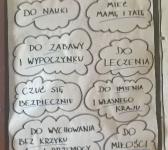 DO NAUKI
MIEĆ
MAMĘ, I TATĘ
DO ZABAWY
I WYPOCZYNKU
DO
LECZENIA
CZUĆ SIĘ
BEZPIECZNIE
DO IMIENIA
I WŁASNEGO
KRAJU
DO WYCHOWANIA
BEZ KRZYKU
I PRZEMOCY
DO
MIŁOŚCI